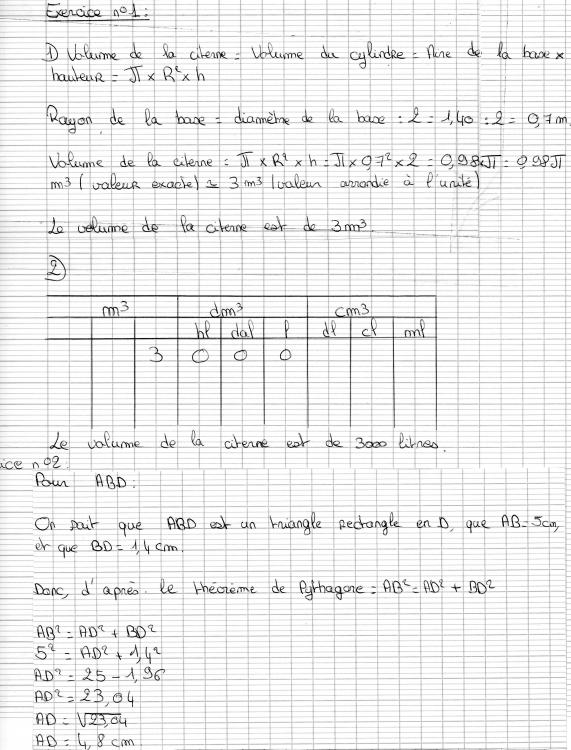 Exercice n°1:
1) Volume de la citerne = Volume du cylindre = Aire de la base ×
hauteur = π × R² × h
Rayon de la base = diamètre de la base : 2 = 1,40 : 2 = 0,7 m.
Volume de la citerne = π × R² × h = π × 0,7² × 2 = 0,98×π = 0,98π
m³ (valeur exacte) ≃ 3 m³ (valeur arrondie à l'unité)
Le volume de la citerne est de 3 m³.
2)
m³ dm³ cm³
hl dal l dl cl ml
3 0 0 0
Le volume de la citerne est de 3000 litres.
ice n°2:
Pour ABD:
On sait que ABD est un triangle rectangle en D, que AB=5cm,
et que BD=1,4 cm.
Donc, d'après le théorème de Pythagore = AB² = AD² + BD²
AB² = AD² + BD²
5² = AD² + 1,4²
AD² = 25 - 1,96
AD² = 23,04
AD = √23,04
AD = 4,8 cm